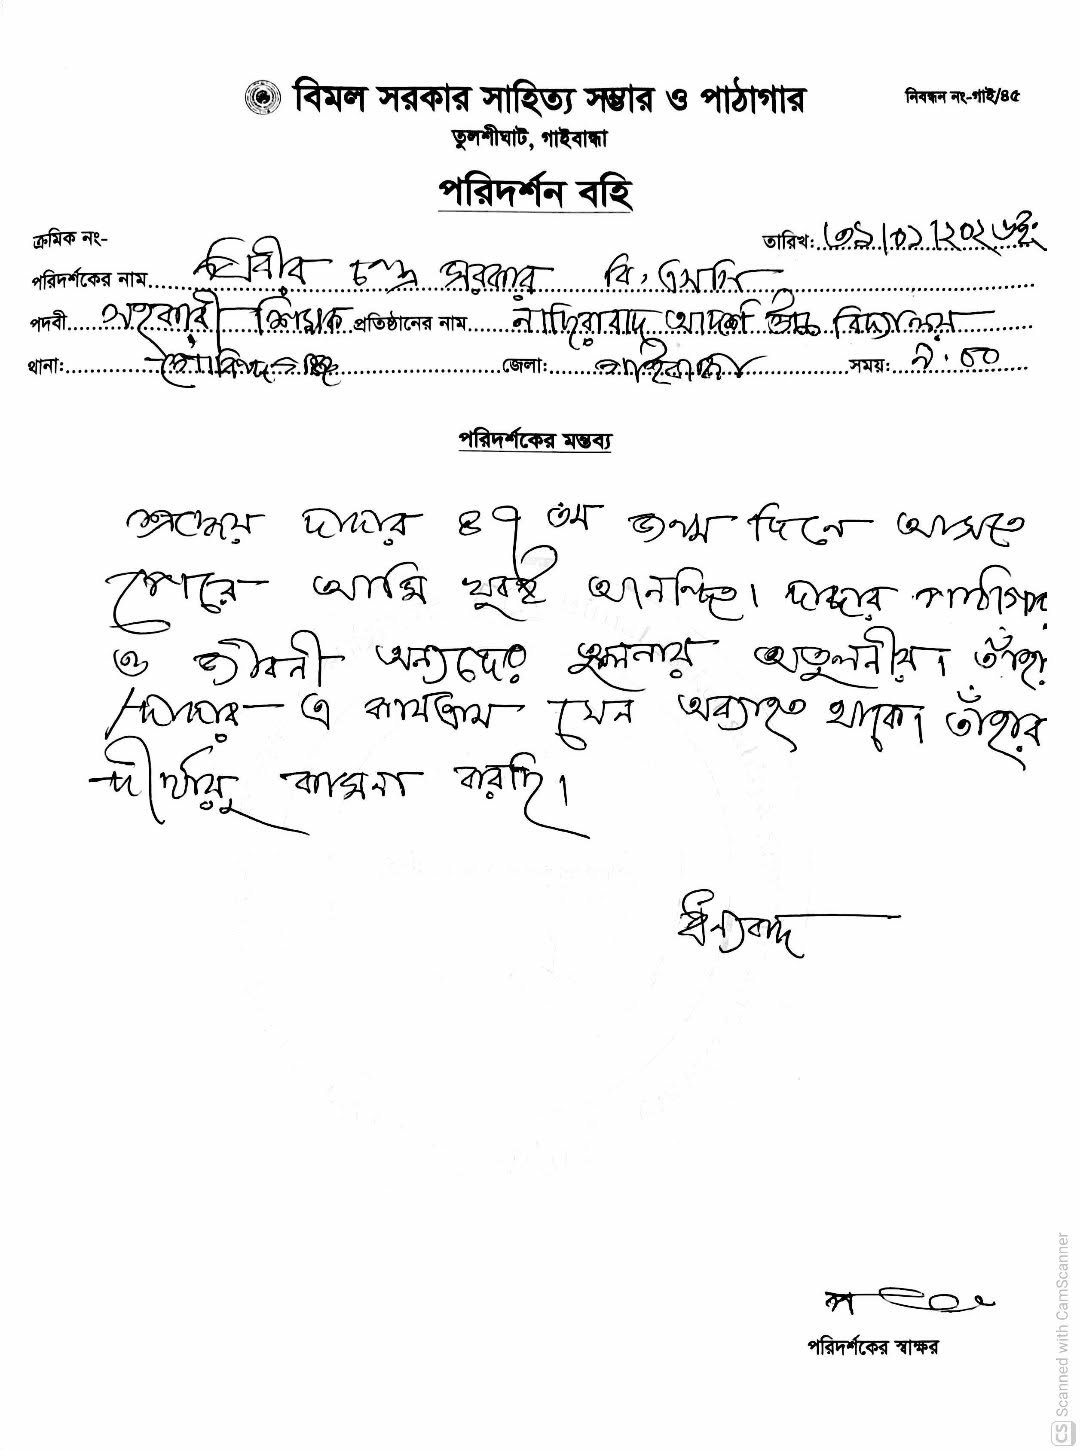 বিমল সরকার সাহিত্য সম্ভার ও পাঠাগার
নিবন্ধন নং-গাই/৪৫
তুলশীঘাট, গাইবান্ধা
পরিদর্শন বহি
ক্রমিক নং-
তারিখ: ৩১/০১/২০২৬ইং
পরিদর্শকের নাম প্রবীর চন্দ্র সরকার বি,এসসি
পদবী সহকারী শিক্ষক প্রতিষ্ঠানের নাম নাদিরাবাদ আদর্শ উচ্চ বিদ্যালয়
থানা: গোবিন্দগঞ্জ জেলা: গাইবান্ধা সময়: ৭:৩০
পরিদর্শকের মন্তব্য
দাদার ৪৭ তম জন্ম দিনে আসতে
পেরে আমি খুবই আনন্দিত। দাদার পাঠাগার
ও জীবনী অন্যদের তুলনায় অতুলনীয়। তাঁহা
দাদার এ কার্যক্রম যেন অব্যাহত থাকে। তাঁহার
দীর্ঘায়ু কামনা করছি।
ধন্যবাদ
পরিদর্শকের স্বাক্ষর
CS Scanned with CamScanner